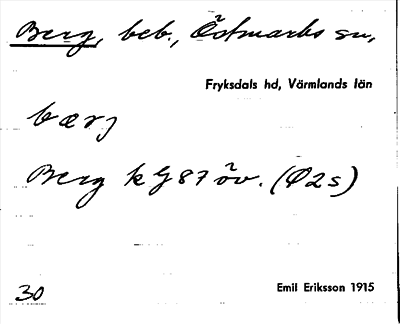 Berg, beb., Östmarks sn,
Fryksdals hd, Värmlands län
bærj
Berg kG87 öv. (Ö2s)
30
Emil Eriksson 1915